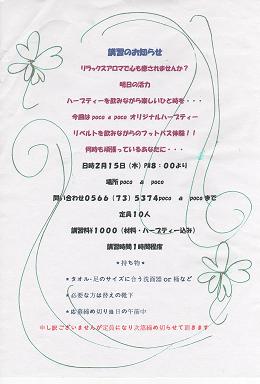 講習のお知らせ
リラックスアロマで心も癒されませんか？
明日の活力
ハーブティーを飲みながら楽しいひと時を・・・
今回は poco a poco オリジナルハーブティー
リベルトを飲みながらのフットバス体験！！
何時も頑張っているあなたに・・・
日時２月１５日（水）PM８：００より
場所 poco a poco
問い合わせ０５６６（７３）５３７４poco a poco まで
定員１０人
講習料￥１０００（材料・ハーブティー込み）
講習時間１時間程度
＊持ち物＊
＊タオル・足のサイズに合う洗面器 or 桶など
＊必要な方は替えの靴下
＊応募締め切り当日の午前中
※申し訳ございませんが定員になり次第締め切らせて頂きます